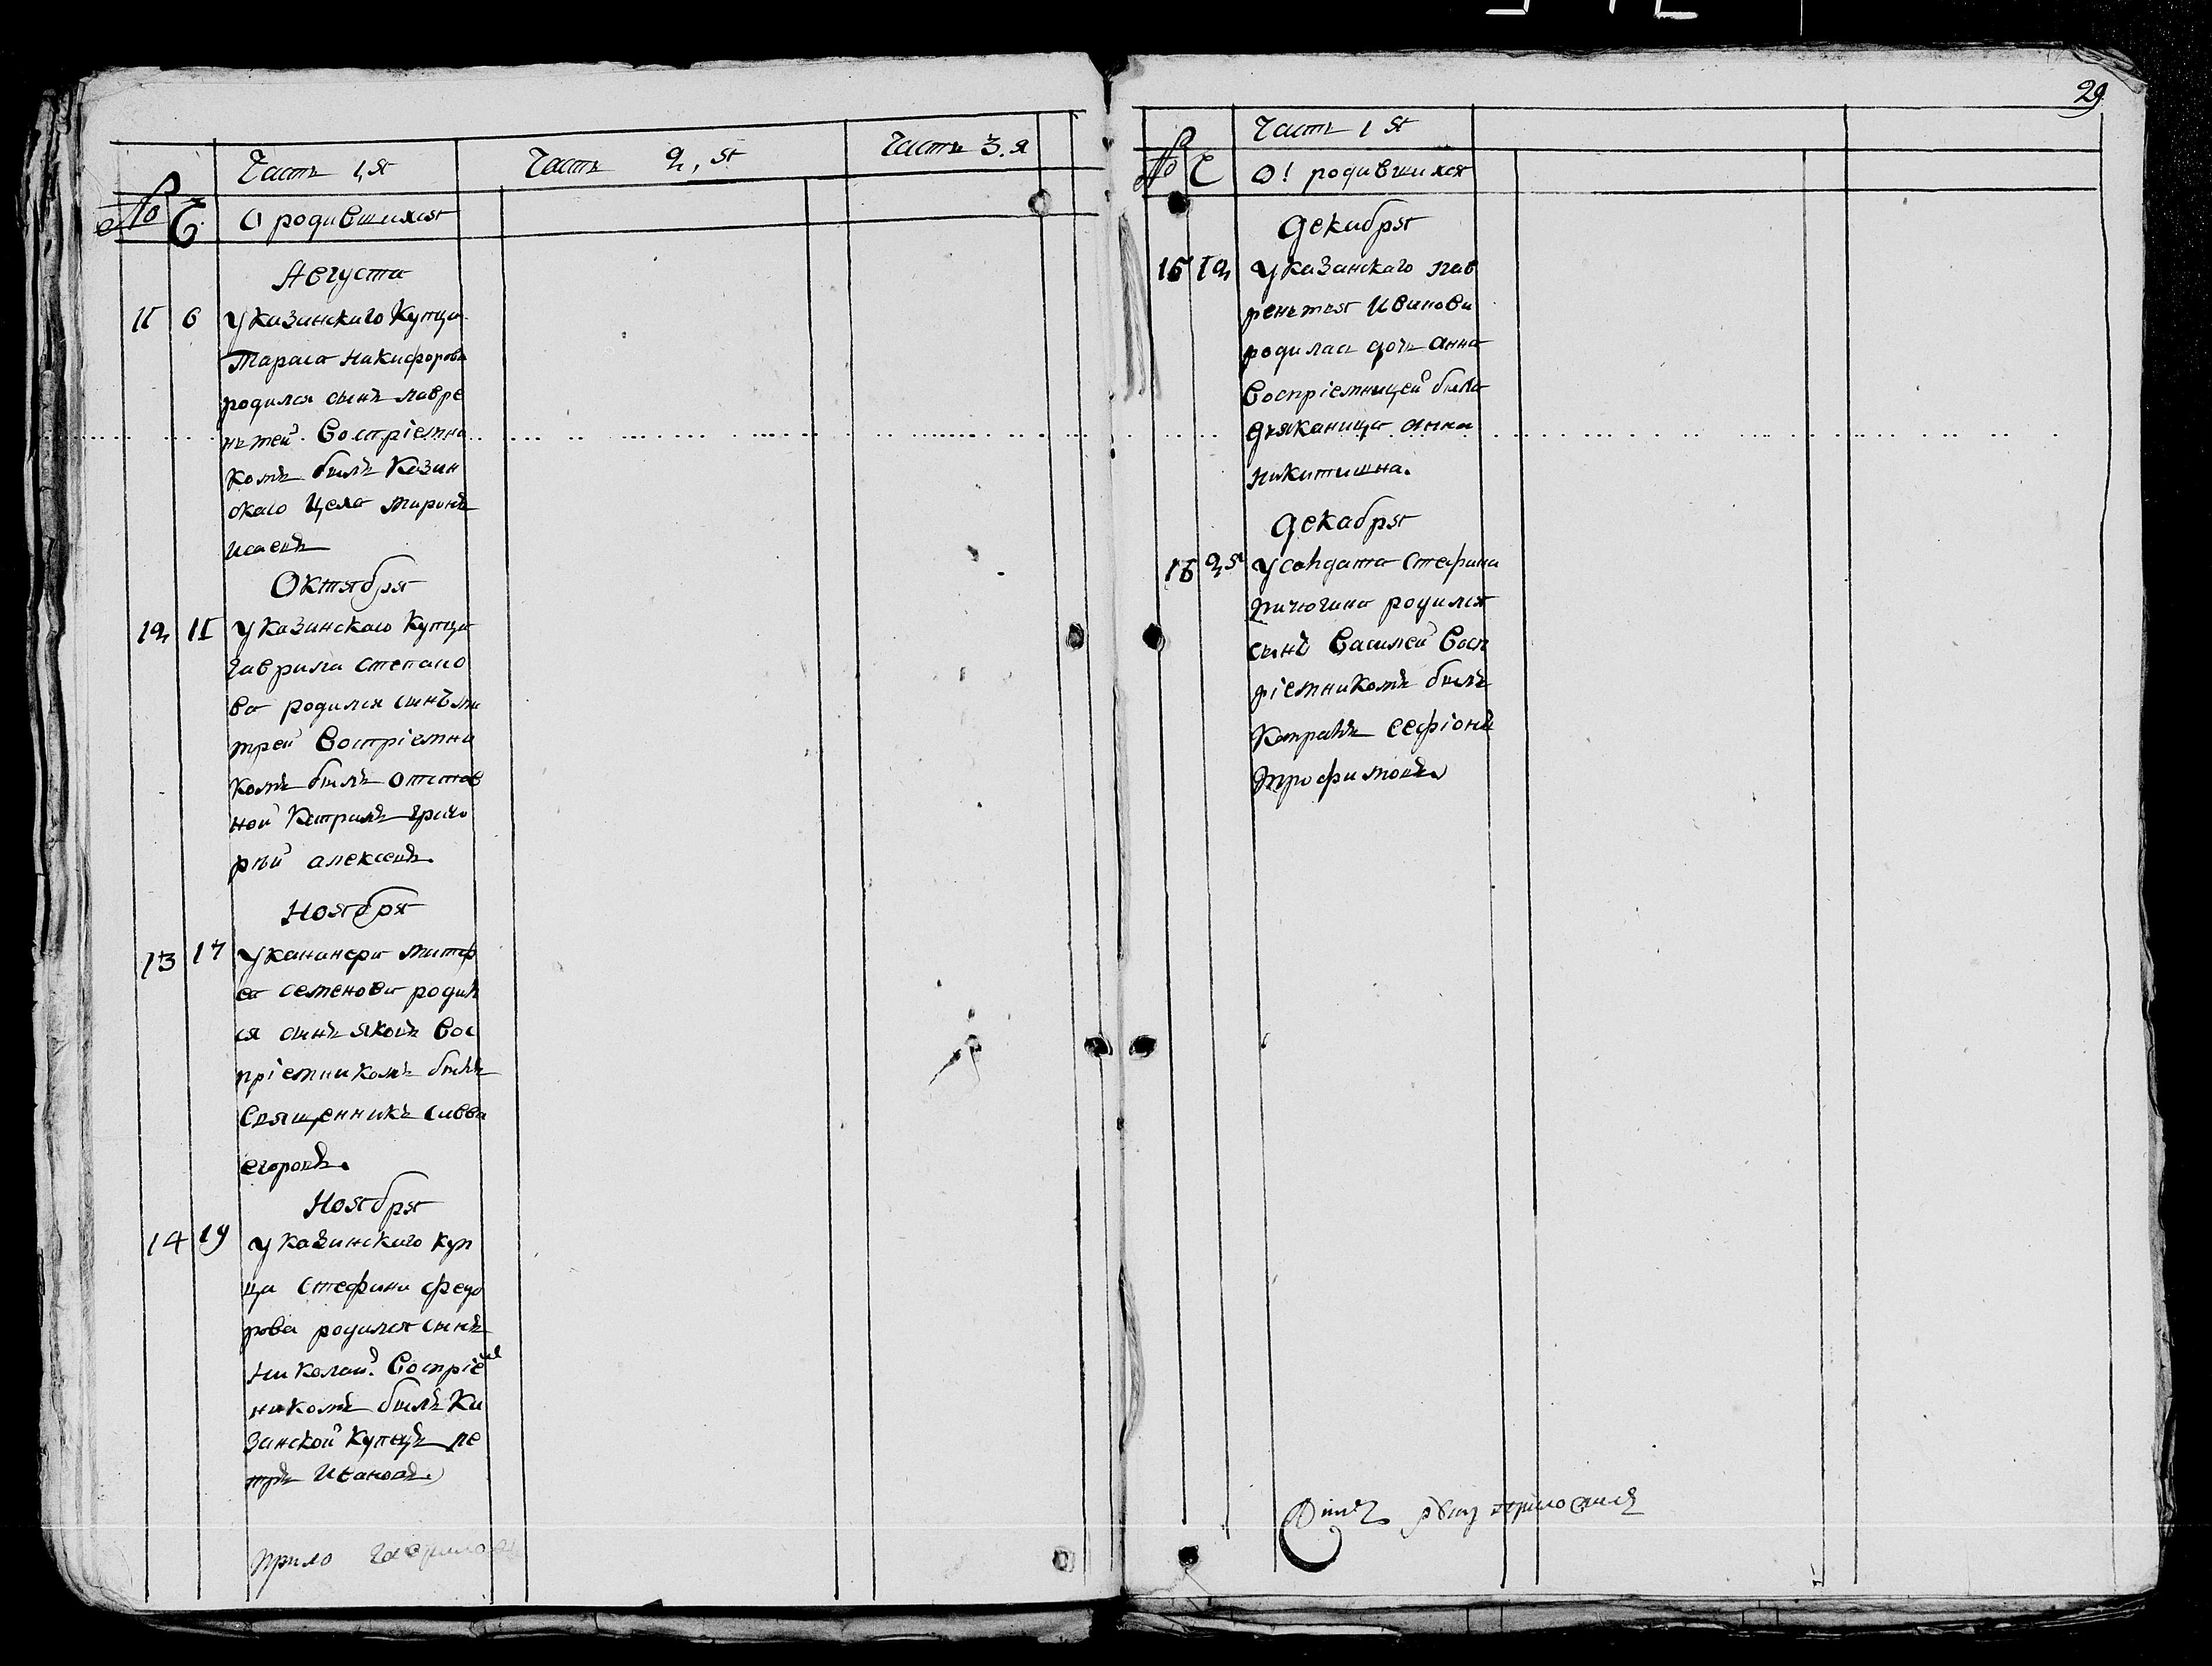 29
Часть 1,я Часть 2,я Часть 3.я
№ Ч О родившихся
Августа
11 6 У казанскаго купца
Тараса Никифорова
родился сынъ лавре
нътей. Воспріемни
комъ былъ Казан
скаго цеха миронъ
исаевъ
Октября
12 11 У казанскаго купца
гаврила степано
ва родился сынъ ми
трей Воспріемни
комъ былъ отстав
ной капралъ григо
рѣй алексеевъ
Ноября
13 17 У канонера митр
ея семенова родил
ся сынъ яковъ Вос
пріемникомъ былъ
Священникъ савва
егоровъ.
Ноября
14 19 У казанскаго куп
ца стефана федо
рова родился сынъ
николай. Воспріем
никомъ былъ Ка
занской купецъ пе
тръ Ивановъ
Часть 1 я
№ Ч О! родившихся
Декабря
15 12 У казанскаго лав
рентея Иванова
родилась дочь анна
Воспріемницей была
дьяканица анна
никитишна.
Декабря
16 25 У солдата стефана
пичюгина родился
сынъ Василей Восп
ріемникомъ былъ
капралъ
трофимовъ